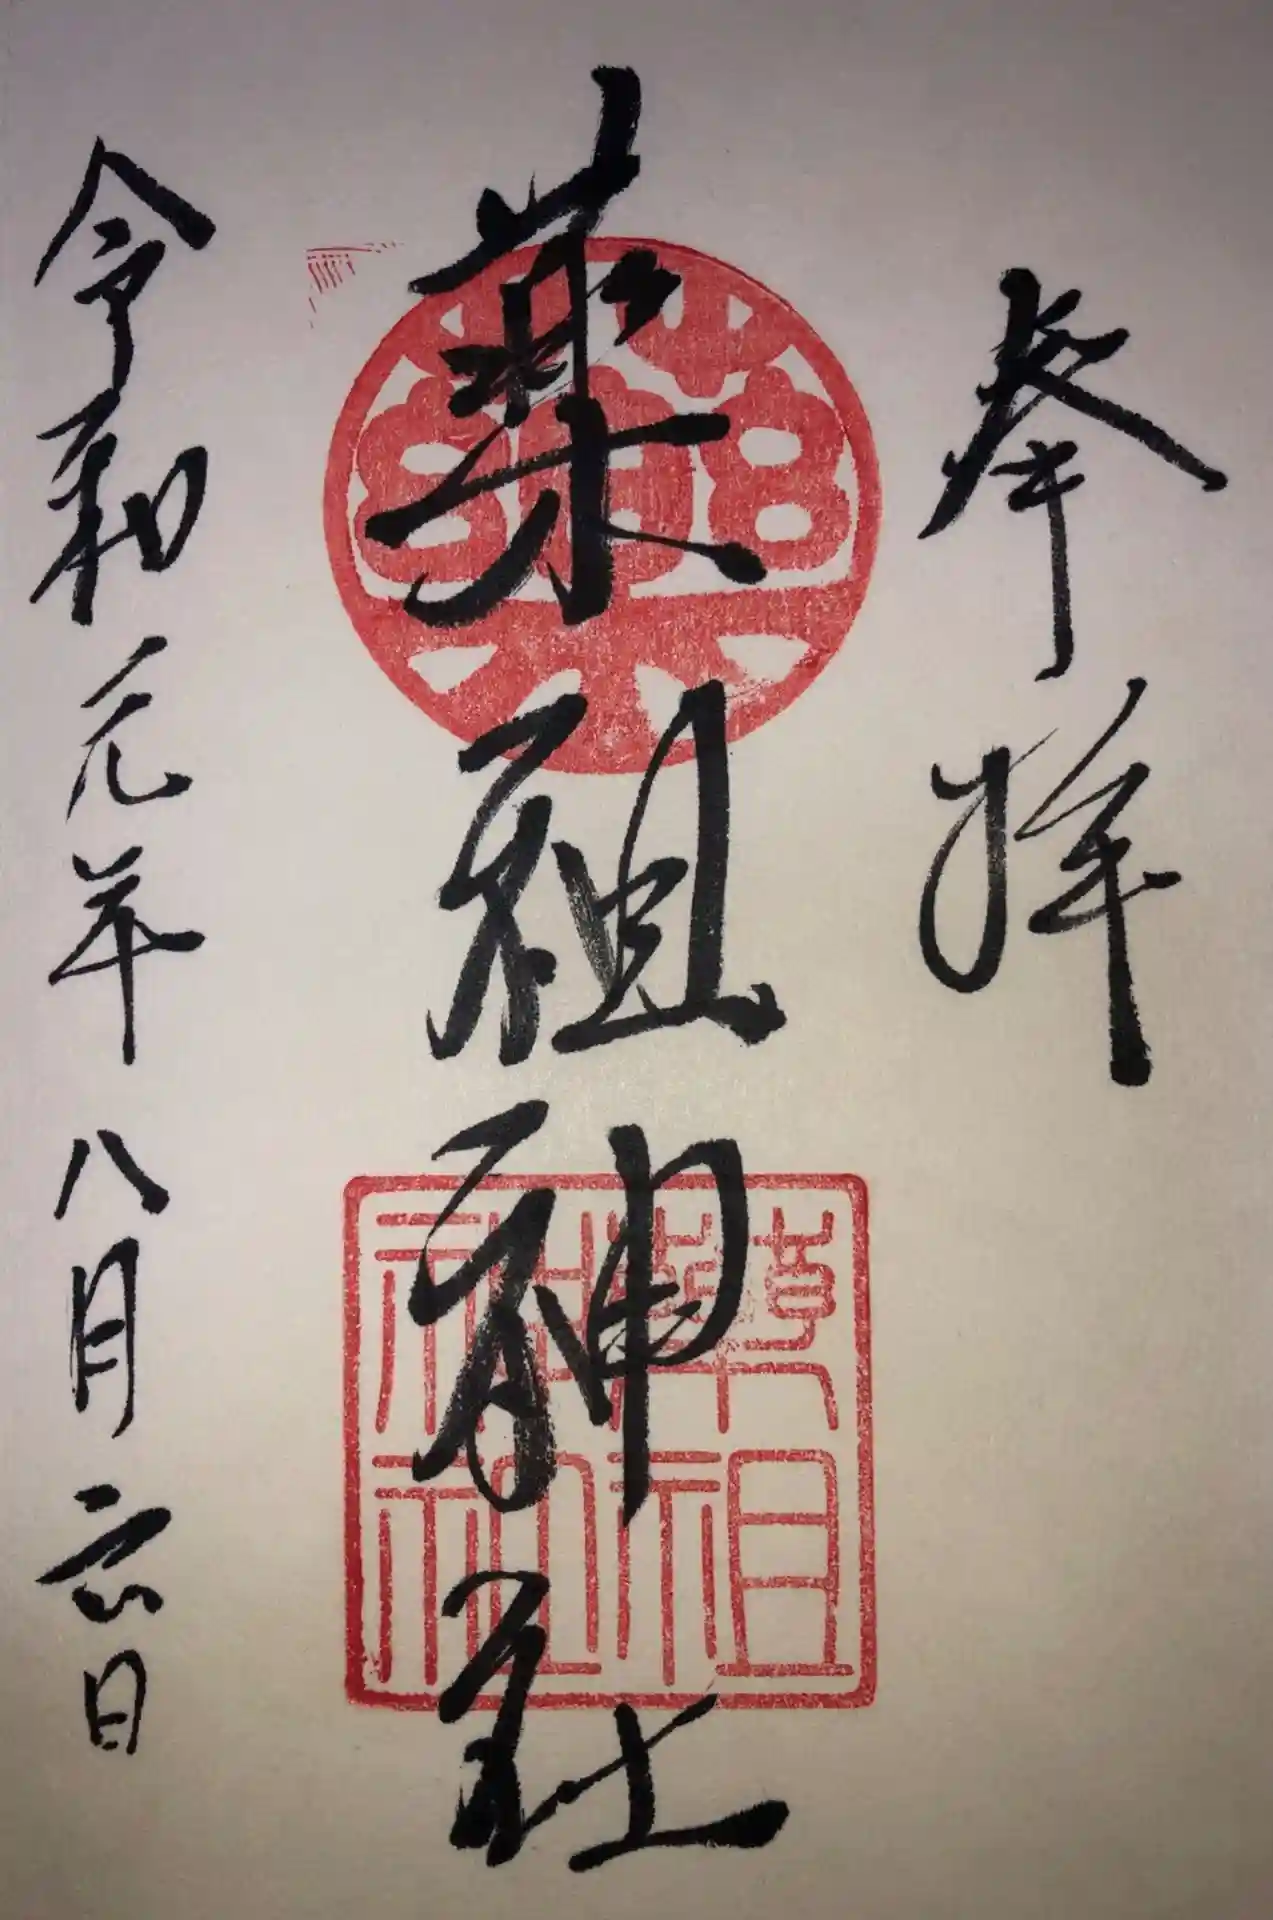 奉拝
菓祖神社
菓祖
神社
令和元年八月六日